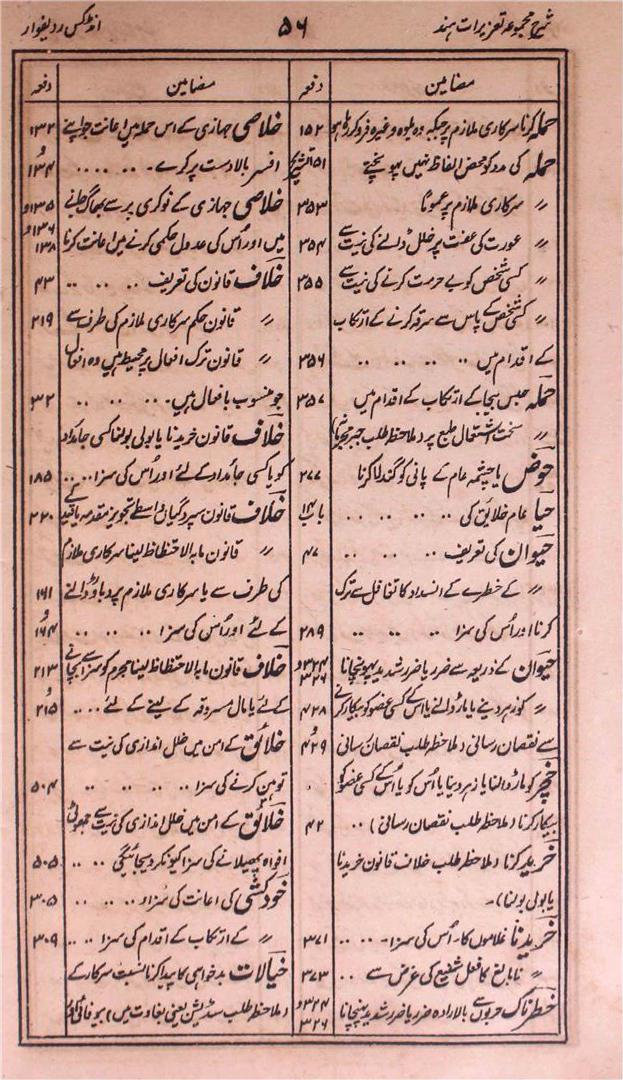 شرح مجموعہ تعزیرات ہند
۵۶
انڈکس ردیفوار
مضامین دفعہ
حملہ کرنا سرکاری ملازم پر جبکہ وہ بلوہ وغیرہ فرو کر رہا ہو ۱۵۲
حملہ کی مد کو محض الفاظ نہیں پہونچتے ۳۵۱ تشریح
〃 سرکاری ملازم پر عموماً ۳۵۳
〃 عورت کی عفت پر خلل ڈالنے کی نیت سے ۳۵۴
〃 کسی شخص کو بے حرمت کرنے کی نیت سے ۳۵۵
〃 کسی شخص کے پاس سے سرقہ کرنے کے ارتکاب
کے اقدام میں .. .. .. .. ۳۵۶
حملہ حبس بیجا کے ارتکاب کے اقدام میں ۳۵۷
〃 سخت اشتعال طبع پر (ملاحظہ طلب جبر مجرمانہ)
حوض یا چشمہ عام کے پانی کو گندلا کرنا ۲۷۷
حیا عام خلائق کی .. .. .. .. باب ۱۴
حیوان کی تعریف .. .. .. .. ۴۷
〃 کے خطرے کے انسداد کا تغافل سے ترک
کرنا اور اُس کی سزا .. .. .. ۲۸۹
حیوان کے ذریعہ سے ضرر یا ضرر شدید پہونچانا ۳۲۴ و ۳۲۶
〃 کو زہر دینے یا مار ڈالنے یا اس کے کسی عضو کو بیکار کرنے ۴۲۸
سے نقصان رسانی (ملاحظہ طلب نقصان رسانی و ۴۲۹
خچر کو مار ڈالنا یا زہر دینا یا اُس کو یا اُس کے کسی عضو کو
بیکار کرنا (ملاحظہ طلب نقصان رسانی) .. ۴۲
خرید کرنا (ملاحظہ طلب خلاف قانون خریدنا
یا بولی بولنا)۔
خریدنا غلاموں کا۔ اُس کی سزا۔ .. .. ۳۷۱
〃 نابالغ کا فعل شنیع کی غرض سے .. ۳۷۳
خطرناک حربوں سے بالارادہ ضرر یا ضرر شدید پہنچانا ۳۲۴ و ۳۲۶
مضامین دفعہ
خلاصی جہازی کے اس حملہ میں اعانت جو اپنے ۱۳۳
افسر بالادست پر کرے۔ .. .. .. و ۱۳۴
خلاصی جہازی کے نوکری پر سے بھاگ جانے ۱۳۵ و
میں اور اُس کی عدول حکمی کرنے میں اعانت کرنا ۱۳۶ و ۱۳۸
خلاف قانون کی تعریف .. .. .. ۴۳
〃 قانون حکم سرکاری ملازم کی طرف سے ۲۱۹
〃 قانون ترک افعال پر محیط ہیں وہ افعال
جو منسوب بافعال ہیں۔ .. .. .. ۳۲
خلاف قانون خریدنا یا بولی بولنا کسی جائداد
کو یا کسی جائداد کے لئے اور اُس کی سزا .. .. ۱۸۵
خلاف قانون سپردگیاں واسطے تجویز مقدمہ یا قید کے ۲۲۰
〃 قانون مابہ الاحتظاظ لینا سرکاری ملازم
کی طرف سے یا سرکاری ملازم پر دباؤ ڈالنے ۱۶۱
کے لئے اور اُس کی سزا .. .. .. و ۱۶۴
خلاف قانون مابہ الاحتظاظ لینا مجرم کو سزا سے بچانے ۲۱۳
کے لئے یا مال مسروقہ کے لینے کے لئے .. .. و ۲۱۵
خلائق کے امن میں خلل اندازی کی نیت سے
توہین کرنے کی سزا .. .. .. ۵۰۴
خلائق کے امن میں خلل اندازی کی نیت سے جھوٹی
افواہ پھیلانے کی سزا کیونکر دیجائیگی .. .. ۵۰۵
خودکشی کی اعانت کی سزا .. .. .. ۳۰۵
〃 کے ارتکاب کے اقدام کی سزا .. .. ۳۰۹
خیالات بدخواہی کا پیدا کرنا نسبت سرکار کے
(ملاحظہ طلب سڈیشن یعنی بغاوت میں) بیوفائی اور